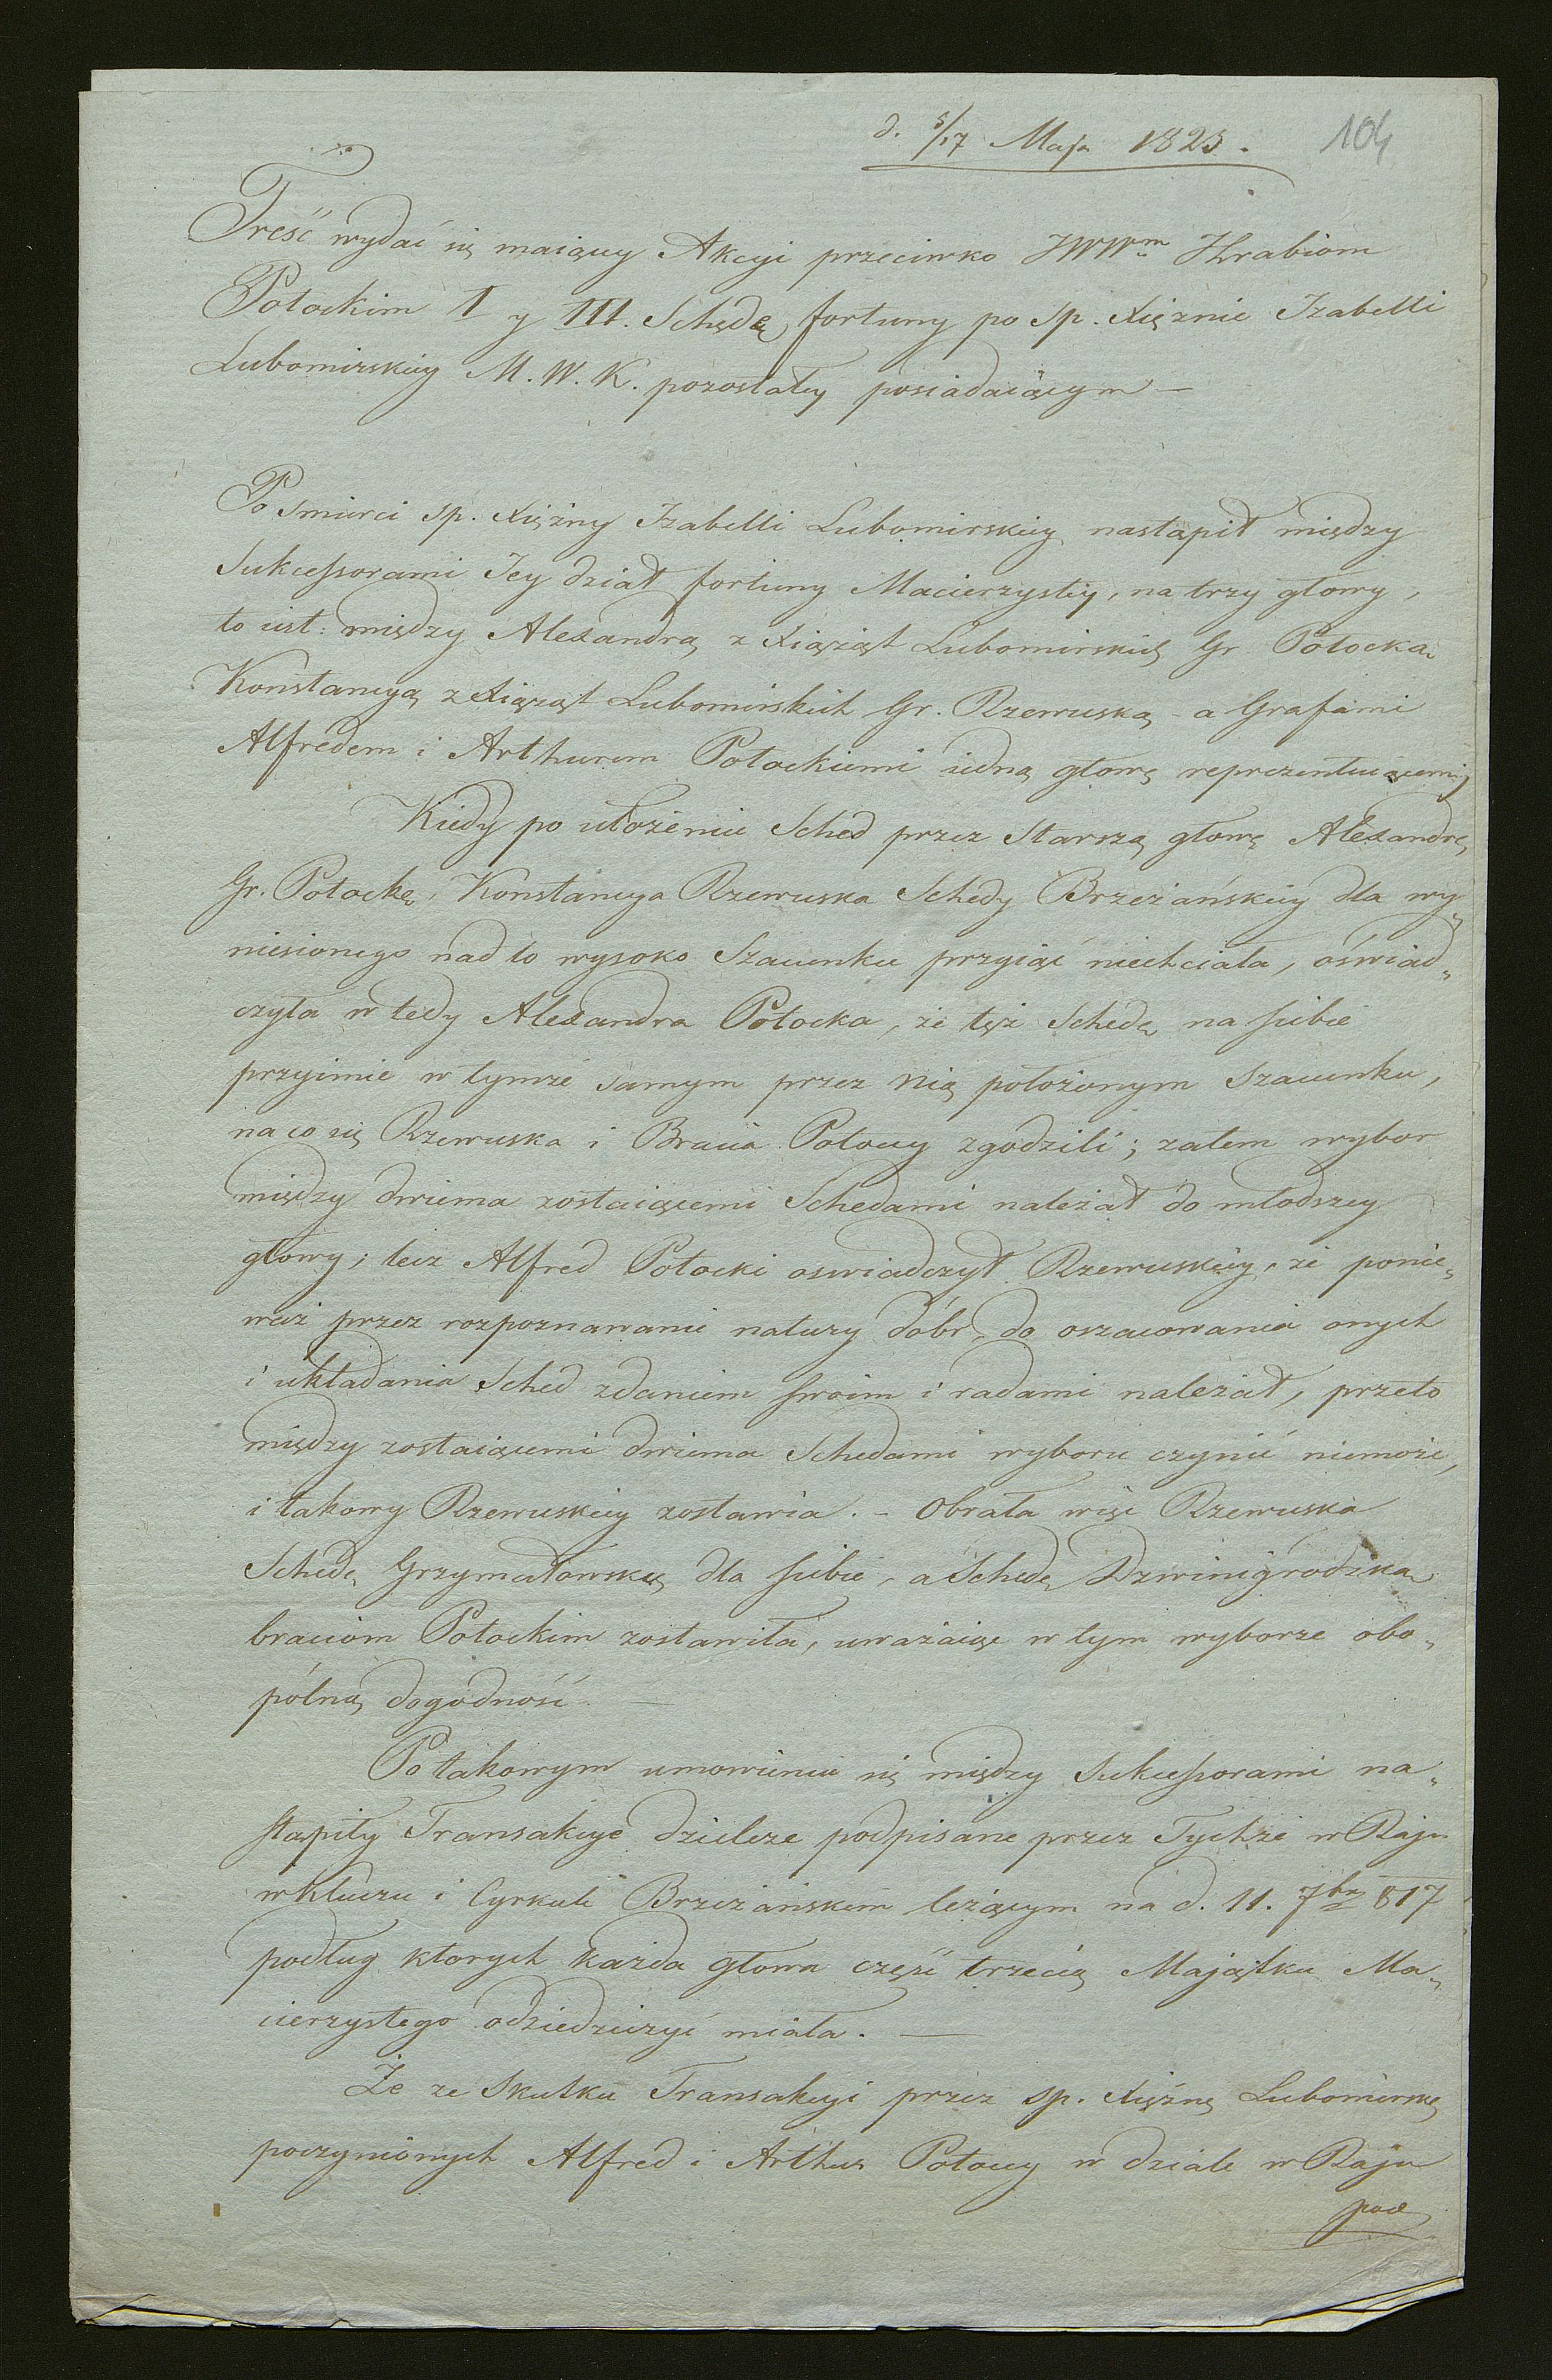 d. 5/17 Maja 1823.
104
Treść wydać się maiącey Akcyi przeciwko JWWm Hrabiom
Potockim I y III. Schedę fortuny po śp. Xiężnie Izabelli
Lubomirskiey M. W. K. pozostałey posiadaiącym —
Po smierci śp. Xiężny Izabelli Lubomirskiey nastąpił między
Sukcessorami Jey dział fortuny Macierzystey, na trzy głowy,
to iest: między Alexandrą z Xiążąt Lubomirskich Gr. Potocką
Konstancyą z Xiążąt Lubomirskich Gr. Rzewuską – a Grafami
Alfredem i Arthurem Potockiemi iedną głowę reprezentuiącemi
Kiedy po ułożeniu Sched przez Starszą głowę Alexandrę
Gr. Potockę, Konstancya Rzewuska Schedy Brzeżańskiey dla wy„
niesionego nad to wysoko Szacunku przyiąć niechciała, oświad„
czyła wtedy Alexandra Potocka, że tęż Schedę na siebie
przyimie w tymże samym przez nią położonym Szacunku,
na co się Rzewuska i Bracia Potoccy zgodzili; zatem wybor
między dwiema zostaiącemi Schedami należał do młodszey
głowy; lecz Alfred Potocki oswiadczył Rzewuskiey, że ponie„
waż przez rozpoznawanie natury dóbr, do oszacowania onych
i układania Sched zdaniem swoim i radami należał, przeto
między zostaiącemi dwiema Schedami wyboru czynić niemoże,
i takowy Rzewuskiey zostawia. – Obrała więc Rzewuska
Schedę Grzymałowską dla siebie, a Schedę Dzwinigrodzką
braciom Potockim zostawiła, uważaiąc w tym wyborze obo„
pólną dogodność —
Po takowym umowieniu się między Sukcessorami na„
stąpiły Transakcye dzielcze podpisane przez Tychże w Raju
w Kluczu i Cyrkule Brzeżańskim leżącym na d. 11. 7br 817
podług ktorych każda głowa część trzecią Majątku Ma„
cierzystego odziedziczyć miała. —
Że ze Skutku Transakcyi przez śp. Xiężnę Lubomirskę
poczynionych Alfred i Arthur Potoccy w dziale w Raju
pod